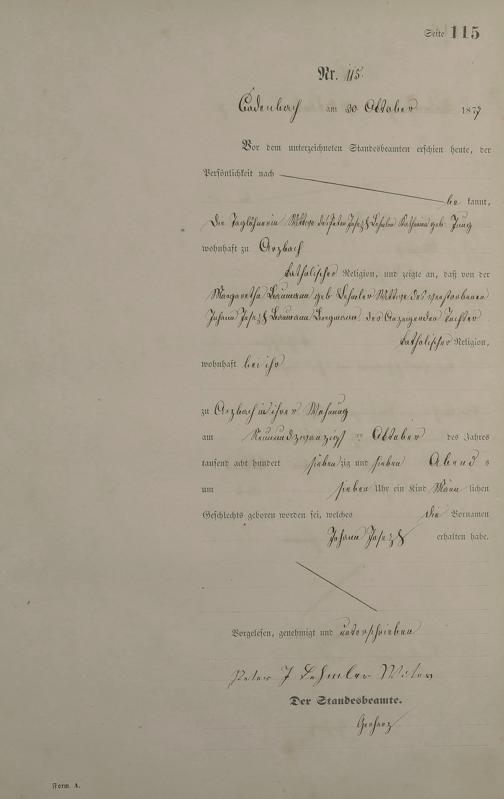 Seite 115
Nr. 115.
Cadenbach am 30 Oktober 1877
Vor dem unterzeichneten Standesbeamten erschien heute, der
Persönlichkeit nach
be kannt,
die Taglöhnerin Wittwe des Peter Josef Lehmler Katharina geb. Jung
wohnhaft zu Arzbach
katholischer Religion, und zeigte an, daß von der
Margaretha Baumann geb. Lehmler Wittwe des verstorbenen
Johann Josef Baumann Bergmann des Anzeigenden Tochter
katholischer Religion,
wohnhaft bei ihr
zu Arzbach in ihrer Wohnung
am Neunundzwanzigsten Oktober des Jahres
tausend acht hundert sieben zig und sieben Abends
um sieben Uhr ein Kind männ lichen
Geschlechts geboren worden sei, welches die Vornamen
Johann Josef erhalten habe.
Vorgelesen, genehmigt und unterschrieben
Peter J Lehmler Witwe
Der Standesbeamte.
Form. A.